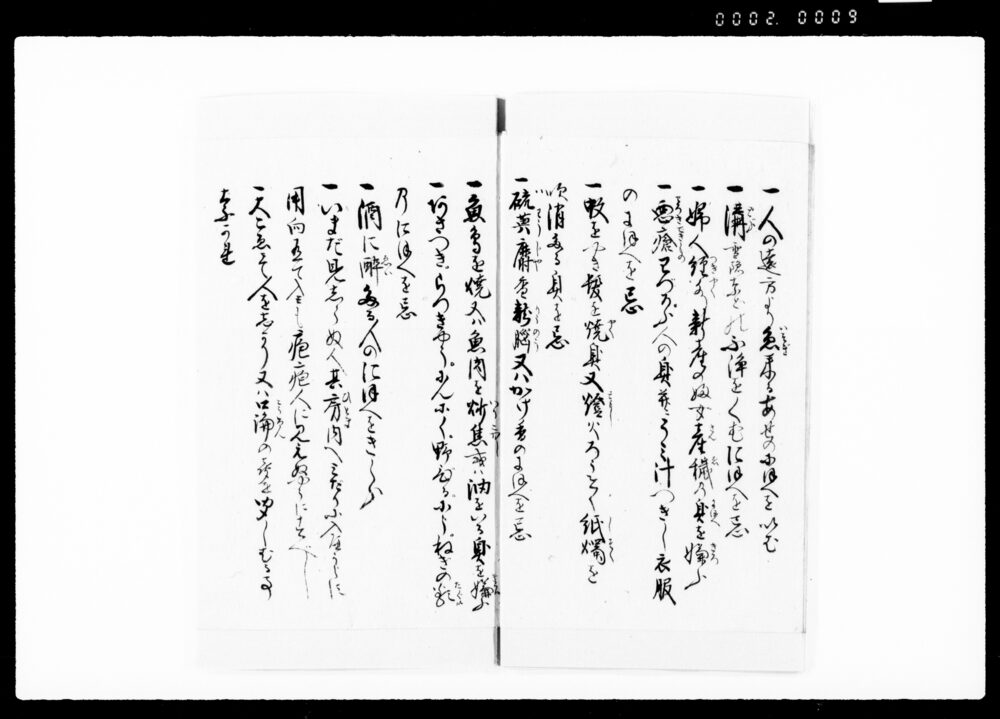 0002.0009
一人の遠方より急来るあせのにほひを いむ
一溝雪隠などの不浄をくむにほへを忌
一婦人経水新産の婦女産穢の臭を嫌ふ
一悪瘡わづらふ人の臭 うミ汁つきし衣服
のにほへを忌
一蚊をやき髪を焼臭又燈火らうそく紙燭を
吹消たる臭を忌
一硫黄麝香龍脳又ハかけ香のにほへを忌
一魚鳥を焼又ハ魚肉を炒焦或ハ油をいる臭を嫌ふ
一 さつき らつきやう にんにく 野びる にら ねぎの
乃にほへを忌
一酒に酔たる人のにほへをきらふ
一いまだ見しらぬ人其房内へミだりに入
用向 て入とも疱瘡人に見えぬやうにすべし
一大こゑて人をしかり又ハ口論の声を聞しむる事
なかれ